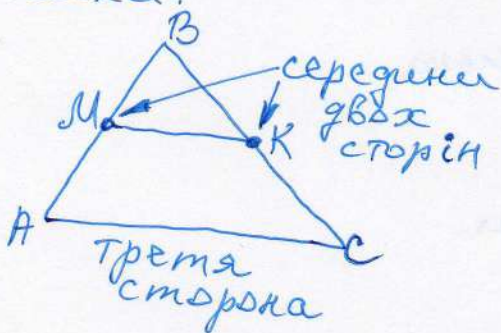 B
середини
двох
сторін
M
K
A
C
третя
сторона